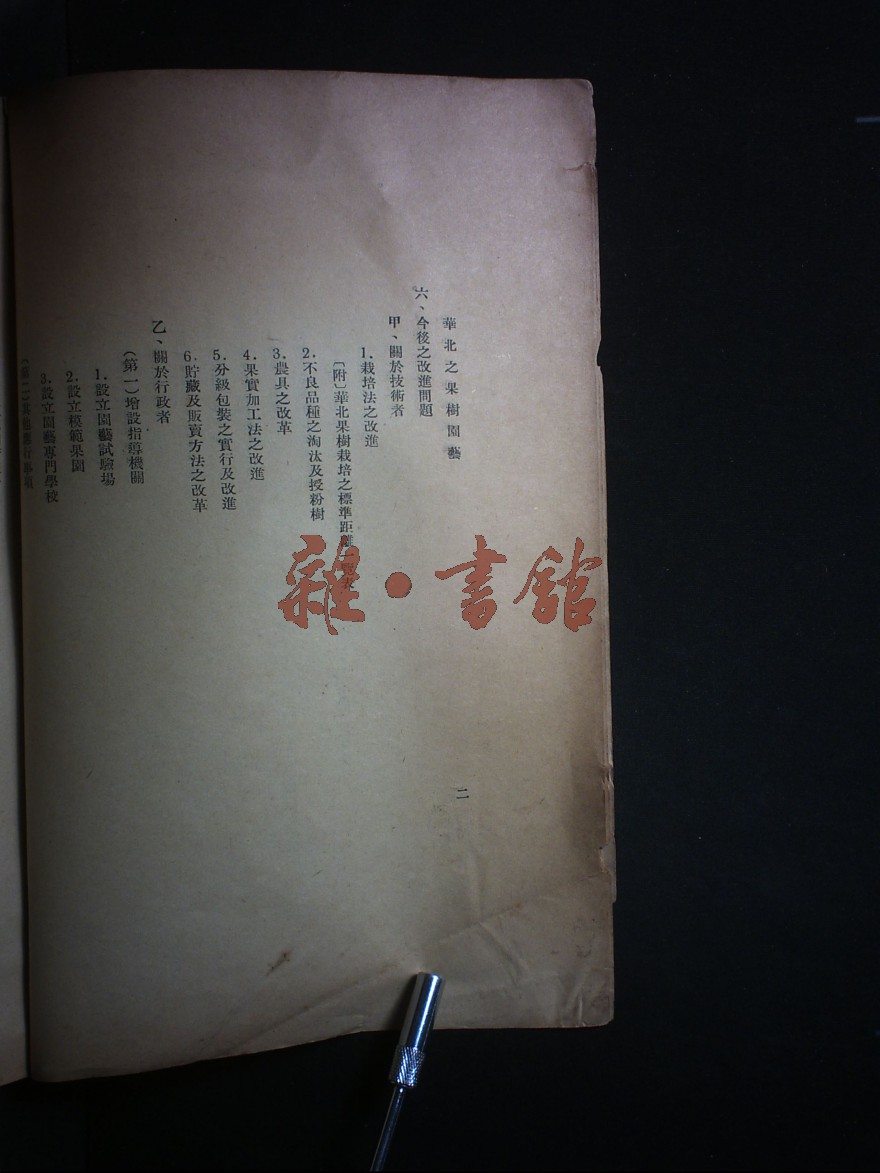 華北之果樹園藝
六、今後之改進問題
甲、關於技術者
1.栽培法之改進
〔附〕華北果樹栽培之標準距離一覽表
2.不良品種之淘汰及授粉樹
3.農具之改革
4.果實加工法之改進
5.分級包裝之實行及改進
6.貯藏及販賣方法之改革
乙、關於行政者
(第一)增設指導機關
1.設立園藝試驗場
2.設立模範果園
3.設立園藝專門學校
(第二)進行事項
二
雜·書館